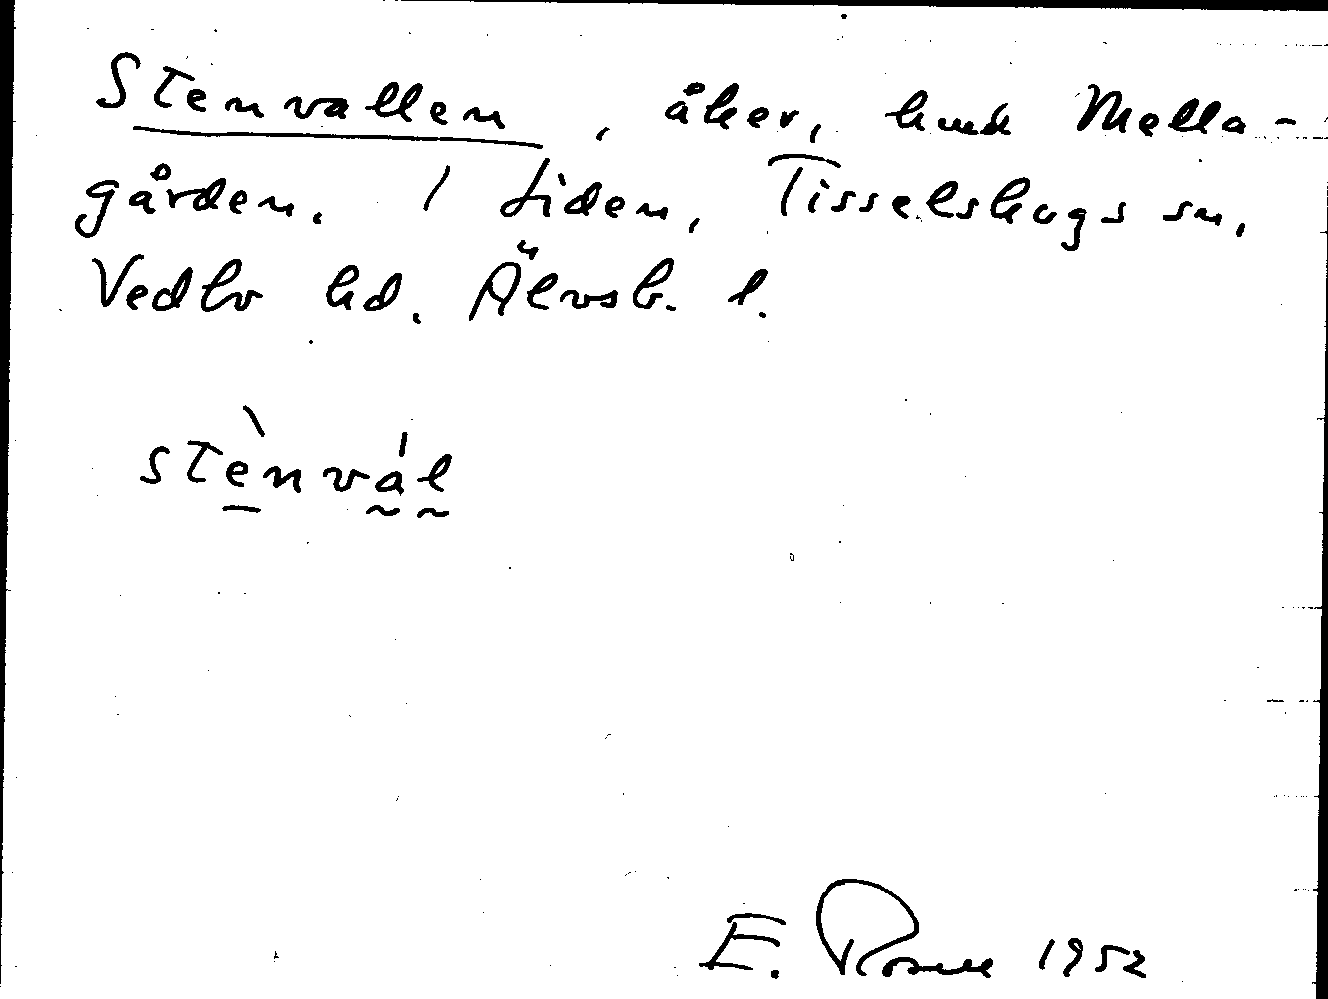 Stenvallen, åker, hmd Mella-
gården. 1 Liden, Tisselskogs sn,
Vedbo hd. Älvsb. l.
stènvál
E. Rosell 1952